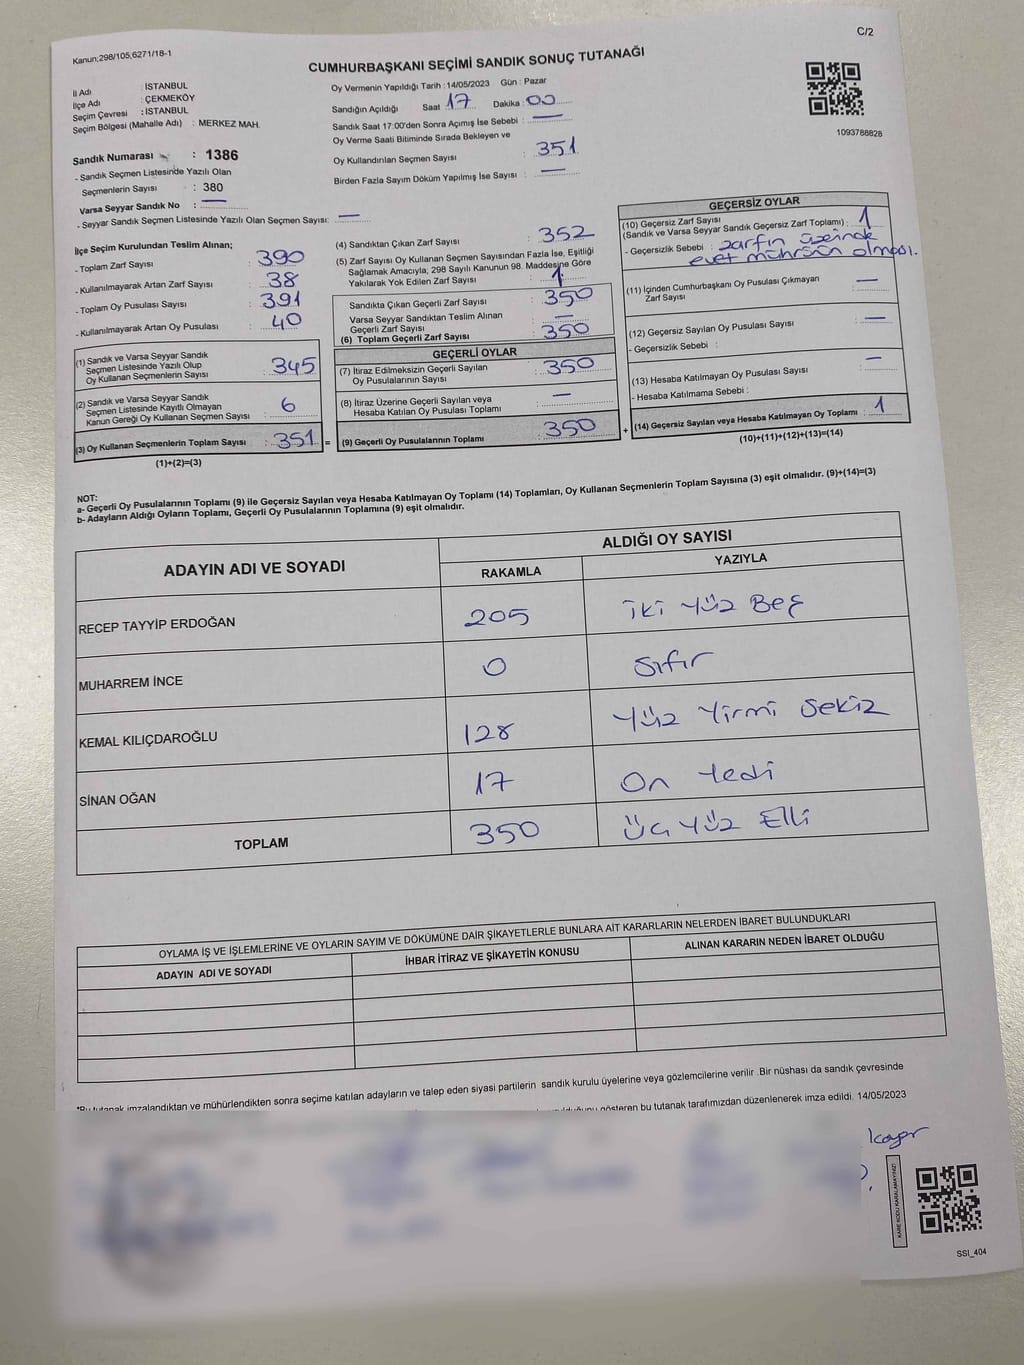 Kanun;298/105,6271/18-1
C/2
CUMHURBAŞKANI SEÇİMİ SANDIK SONUÇ TUTANAĞI
İl Adı : İSTANBUL
İlçe Adı : ÇEKMEKÖY
Seçim Çevresi : İSTANBUL
Seçim Bölgesi (Mahalle Adı) : MERKEZ MAH.
Sandık Numarası : 1386
- Sandık Seçmen Listesinde Yazılı Olan
Seçmenlerin Sayısı : 380
Varsa Seyyar Sandık No : —
- Seyyar Sandık Seçmen Listesinde Yazılı Olan Seçmen Sayısı: —
Oy Vermenin Yapıldığı Tarih : 14/05/2023 Gün : Pazar
Sandığın Açıldığı Saat 17 Dakika : 00
Sandık Saat 17:00'den Sonra Açımış İse Sebebi : —
Oy Verme Saati Bitiminde Sırada Bekleyen ve
Oy Kullandırılan Seçmen Sayısı : 351
Birden Fazla Sayım Döküm Yapılmış İse Sayısı : —
1093788828
İlçe Seçim Kurulundan Teslim Alınan;
- Toplam Zarf Sayısı : 390
- Kullanılmayarak Artan Zarf Sayısı : 38
- Toplam Oy Pusulası Sayısı : 391
- Kullanılmayarak Artan Oy Pusulası : 40
(1) Sandık ve Varsa Seyyar Sandık
Seçmen Listesinde Yazılı Olup
Oy Kullanan Seçmenlerin Sayısı : 345
(2) Sandık ve Varsa Seyyar Sandık
Seçmen Listesinde Kayıtlı Olmayan
Kanun Gereği Oy Kullanan Seçmen Sayısı : 6
(3) Oy Kullanan Seçmenlerin Toplam Sayısı : 351 =
(1)+(2)=(3)
(4) Sandıktan Çıkan Zarf Sayısı : 352
(5) Zarf Sayısı Oy Kullanan Seçmen Sayısından Fazla İse, Eşitliği
Sağlamak Amacıyla; 298 Sayılı Kanunun 98. Maddesine Göre
Yakılarak Yok Edilen Zarf Sayısı : 1
Sandıkta Çıkan Geçerli Zarf Sayısı : 350
Varsa Seyyar Sandıktan Teslim Alınan
Geçerli Zarf Sayısı : —
(6) Toplam Geçerli Zarf Sayısı : 350
GEÇERLİ OYLAR
(7) İtiraz Edilmeksizin Geçerli Sayılan
Oy Pusulalarının Sayısı : 350
(8) İtiraz Üzerine Geçerli Sayılan veya
Hesaba Katılan Oy Pusulası Toplamı : —
(9) Geçerli Oy Pusulalarının Toplamı : 350 +
GEÇERSİZ OYLAR
(10) Geçersiz Zarf Sayısı
(Sandık ve Varsa Seyyar Sandık Geçersiz Zarf Toplamı) : 1
- Geçersizlik Sebebi : zarfın üzerinde
evet mührünün olması.
(11) İçinden Cumhurbaşkanı Oy Pusulası Çıkmayan
Zarf Sayısı : —
(12) Geçersiz Sayılan Oy Pusulası Sayısı : —
- Geçersizlik Sebebi :
(13) Hesaba Katılmayan Oy Pusulası Sayısı : —
- Hesaba Katılmama Sebebi :
(14) Geçersiz Sayılan veya Hesaba Katılmayan Oy Toplamı : 1
(10)+(11)+(12)+(13)=(14)
NOT:
a- Geçerli Oy Pusulalarının Toplamı (9) ile Geçersiz Sayılan veya Hesaba Katılmayan Oy Toplamı (14) Toplamları, Oy Kullanan Seçmenlerin Toplam Sayısına (3) eşit olmalıdır. (9)+(14)=(3)
b- Adayların Aldığı Oyların Toplamı, Geçerli Oy Pusulalarının Toplamına (9) eşit olmalıdır.
ADAYIN ADI VE SOYADI
ALDIĞI OY SAYISI
RAKAMLA YAZIYLA
RECEP TAYYİP ERDOĞAN 205 iki yüz Beş
MUHARREM İNCE 0 Sıfır
KEMAL KILIÇDAROĞLU 128 Yüz Yirmi Sekiz
SİNAN OĞAN 17 On Yedi
TOPLAM 350 Üç Yüz Elli
OYLAMA İŞ VE İŞLEMLERİNE VE OYLARIN SAYIM VE DÖKÜMÜNE DAİR ŞİKAYETLERLE BUNLARA AİT KARARLARIN NELERDEN İBARET BULUNDUKLARI
ADAYIN ADI VE SOYADI İHBAR İTİRAZ VE ŞİKAYETİN KONUSU ALINAN KARARIN NEDEN İBARET OLDUĞU
*Bu tutanak imzalandıktan ve mühürlendikten sonra seçime katılan adayların ve talep eden siyasi partilerin sandık kurulu üyelerine veya gözlemcilerine verilir .Bir nüshası da sandık çevresinde
gösteren bu tutanak tarafımızdan düzenlenerek imza edildi. 14/05/2023
KARE KODU KARALAMAYINIZ!
SSI_404